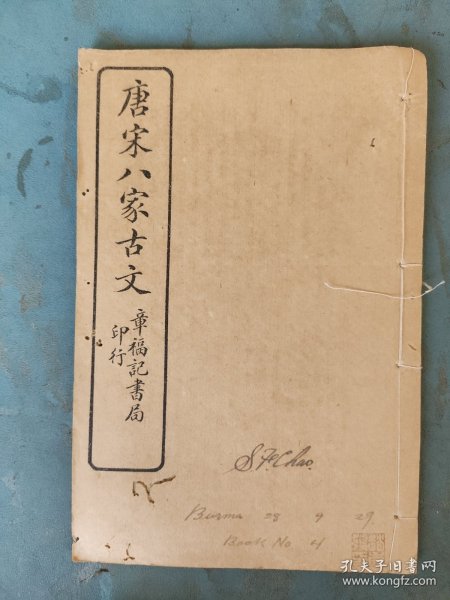 唐宋八家古文
章福記書局
印行
S. F. Chao.
Burma 28 9 29
Book No 4
孔夫子旧书网
www.kongfz.com